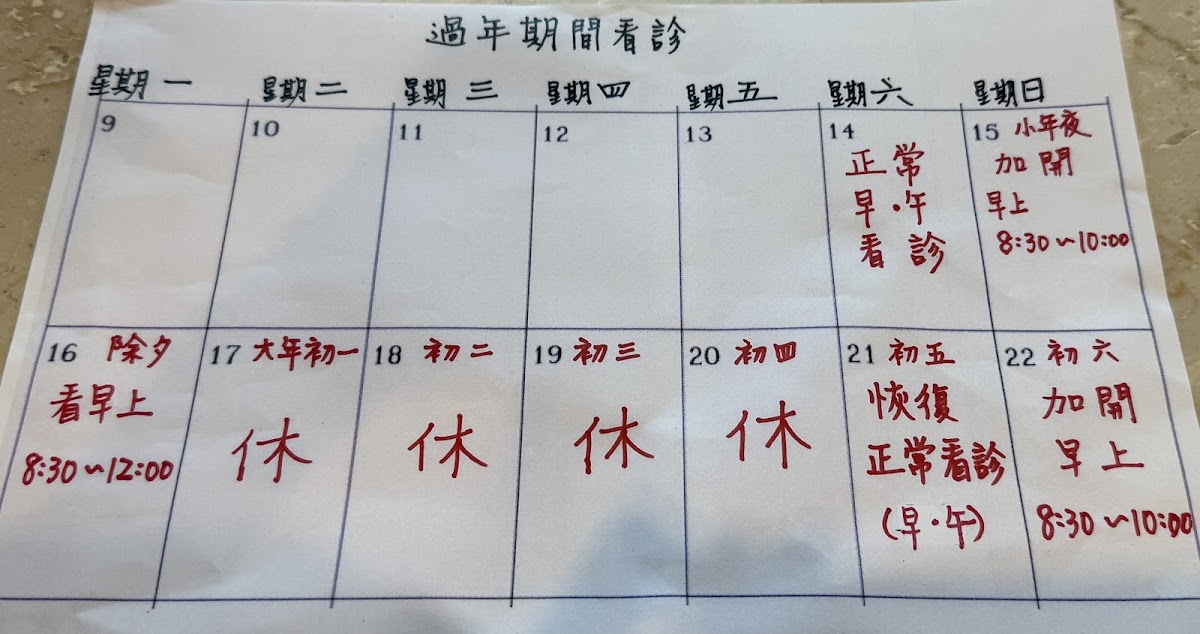 過年期間看診
星期一 星期二 星期三 星期四 星期五 星期六 星期日
9
10
11
12
13
14
正常
早・午
看診
15 小年夜
加開
早上
8:30~10:00
16 除夕
看早上
8:30~12:00
17 大年初一
休
18 初二
休
19 初三
休
20 初四
休
21 初五
恢復
正常看診
(早・午)
22 初六
加開
早上
8:30~10:00